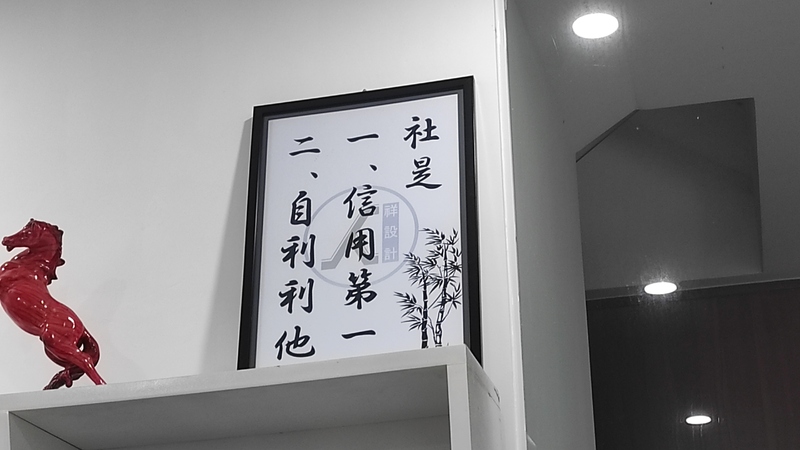 社是
一、信用第一
二、自利利他
祥設計